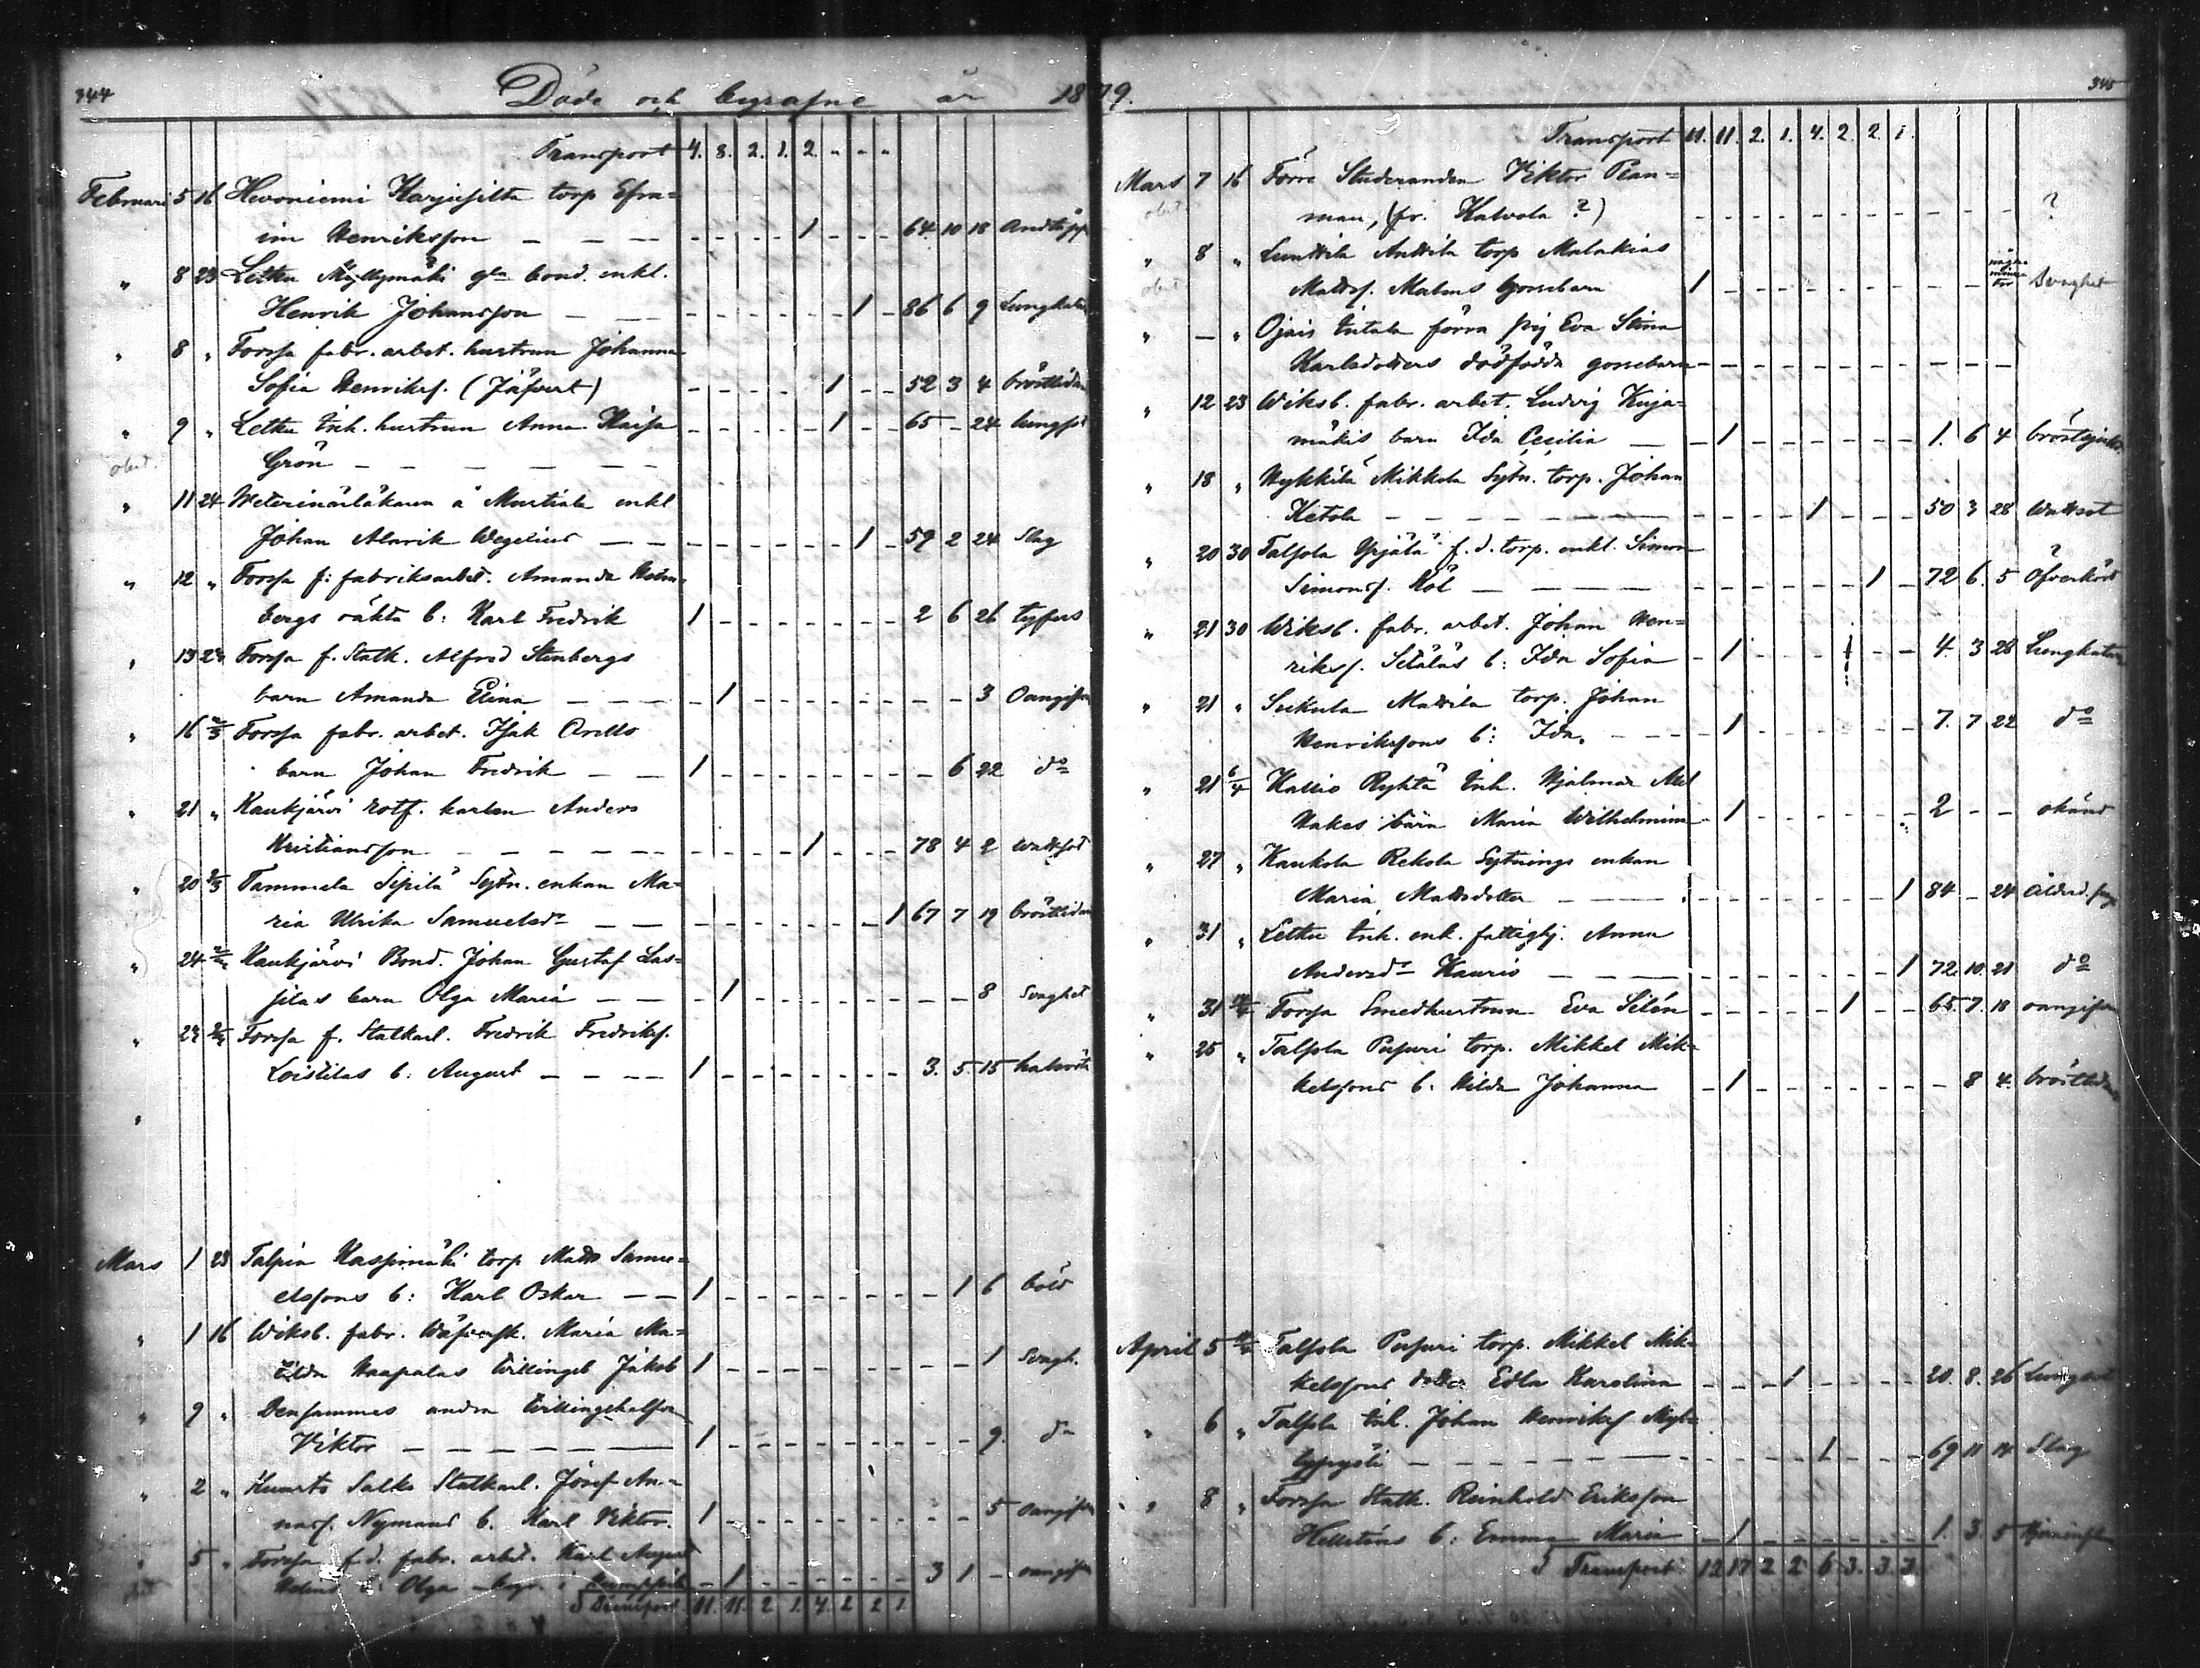 344
Döde och begrafne år 1879.
345
Transport 4. 8. 2. 1. 2. - - -
Februari 5 16 Hevoniemi Harjusilta torp Efra=
im Henriksson - - - 1 64 10 18 Andtäppa
" 8 23 Letku Myllymäki gla bond. enkl.
Henrik Johansson - - 1 - 86 6 9 Lungkatarr
" 8 " Forssa fabr. arbet. hustrun Johanna
Sofia Henriksd. (Jäfvert) 1 - - 52 3 4 bröstlidan
" 9 " Letku Inh. hustrun Anna Kaisa 1 - - 65 - 24 lungsot
obet. Grön - - - - -
" 11 24 Weterinärläkaren å Murtiala enkl
Johan Alarik Wegelius - - 1 - 59 2 24 Slag
" 12 " Forssa f: fabriksarbet. Amanda Holm=
bergs oäkta b: Karl Fredrik 1 - - - - - - - 2 6 26 tyfus
" 13 Forssa f. Statk. Alfred Stenbergs
barn Amanda Elina - - - - 1 - - - - - - - - 3 Oangifven
" 16 2/3 Forssa fabr. arbet. Isak
barn Johan Fredrik - - 1 - - - - - - - - 6 22 do
" 21 " Kaukjärvi rotf. karlen Anders
Kristiansson - - - - - 1 - - - 78 4 2 wattsot
" 20 2/3 Tammela Sipilä Sytn. enkan Ma=
ria Ulrika Samuelsdr - - 1 67 7 19 bröstlidan
" 24 Kaukjärvi Bond. Johan Gustaf Las=
silas barn Olga Maria - - - 1 - - - - - - - - 8 Svaghet
" 23 Forssa f. Statkarl. Fredrik Fredrikss.
b: August - - - 1 - - - - - - - 3. 5. 15
"
Mars 1 23 Talpia Kaspinmäki torp Matts Samu=
elssons b: Karl Oskar - - 1 - - - - - - - - 1 6 böld
" 1 16 Wiksb. fabr. Maria Ma=
tilda Haapalas tvillingeb Jakob 1 - - - - - - - - - 1 Svagh.
" 9 " Densammes andra
Viktor - - - - - - 1 - - - - - - - - - 9. do
" 2 " Salko Statkarl. Josef An=
Nymans b. Karl Viktor. 1 - - - - - - - - - 5 oangifven
" 5 " Forssa f.d. fabr. arbet. Karl August
b: Olga - 1 - - - - - - 3 1 - oangifven
S Transport. 11. 11. 2 1. 4. 2 2 1.
Transport 11. 11. 2. 1. 4. 2. 2. 1.
Mars 7 16 Förre Studeranden Viktor Plan=
obet man, (fr. Kalvola ?) - - - - - - - - - - - ?
" 8 " Anttila torp Malakias
obet Mattss. Malms Gossebarn 1 - - - - - - - - - några minuter Svaghet
" - " Ojais förra pig Eva Stina
Karlsdotters dödfödda gossebarn - - - - - - - - - - -
" 12 23 Wiksb. fabr. arbet. Ludvig Kuja=
mäkis barn Ida Cecilia - - 1 - - - - - - 1. 6 4 bröstsjukd.
" 18 " Mikkola Sytn. torp. Johan
Ketola - - - - - - 1 - - - 50 3 28 Wattsot
" 20 30 Talsola Yrjälä f.d. torp. enkl. Simon
Simonss. - - - - 1 - 72 6. 5 Öfverkörd ?
" 21 30 Wiksb. fabr. arbet. Johan Hen=
rikss. b: Ida Sofia - 1 - - - - - 4. 3 28 Lungkatarr
" 21 " Sukula Mattila torp. Johan
Henrikssons b: Ida. - - - 1 - - - - - - 7. 7 22 do
" 21 6/4 Kallio Ryhtä Inh. Hjalmar
barn Maria Wilhelmina - 1 - - - - - - 2 - - okänd
" 27 " Kaukola Rekola Sytnings enkan
Maria Mattsdotter - - - - 1 84 - 24
" 31 " Letku Inh. enk. fattighj. Anna
Andersdr Kauris - - - - 1 72. 10. 21 do
" 31 Forssa Smedhustrun Eva Silén - - - - - 1 - - 65. 7. 18 oangifven
" 25 " Talsola Pusuri torp. Mikkel Mik=
kelssons b: Hilda Johanna - 1 - - - - - - - 8 4. bröstlidan
April 5 Talsola Pusuri torp. Mikkel Mik=
kelssons Edla Karolina - - - 1 - - - - 20. 8. 26
" 6 " Talsola Inh. Johan Henrikss
- - - - - 1 - - - 69 11 14 Slag
" 8 " Forssa Statk. Reinhold Eriksson
b: Emma Maria - 1 - - - - - - 1. 3. 5
S Transport 12 17 2 2 6 3. 3. 3